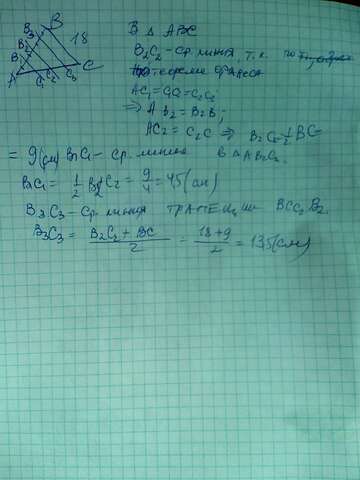 B
B3
18
B2
B1
A
C1 C2 C3
C
В Δ ABC
B2C2 - ср. линия, т.к. по
теореме Фалеса
AC1 = C1C2 = C2C3
⇒ AB2 = B2B;
AC2 = C2C ⇒ B2C2 = 1/2 BC =
= 9(см) B1C1 - ср. линия в ΔAB2C2
B1C1 = 1/2 B2C2 = 9/2 = 4,5(см)
B3C3 - ср. линия трапеции BCC2B2.
B3C3 = (B2C2 + BC)/2 = (18+9)/2 = 13,5(см)